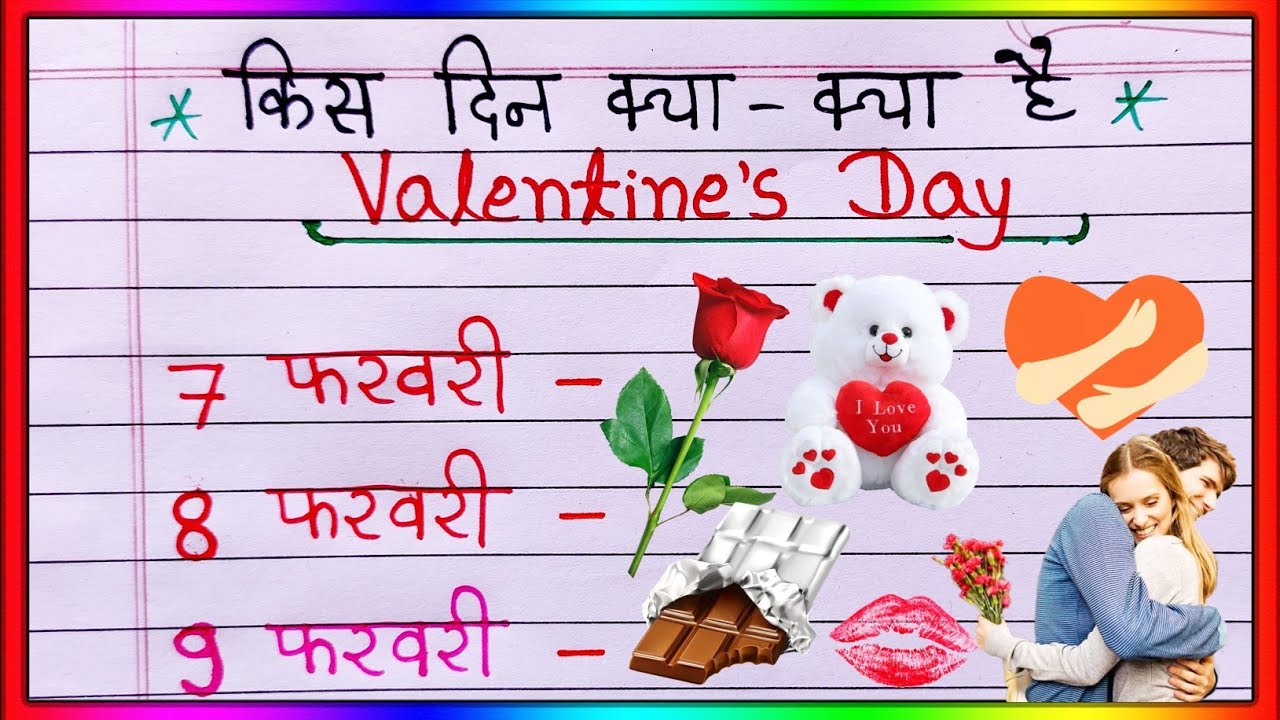 * किस दिन क्या - क्या है *
Valentine's Day
7 फरवरी -
8 फरवरी -
9 फरवरी -
I Love
You